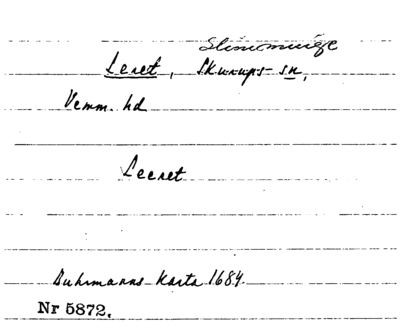 Leret, Skurups sn,
Vemm. hd
Leeret
Buhrmanns Karta 1684.
Nr 5872.